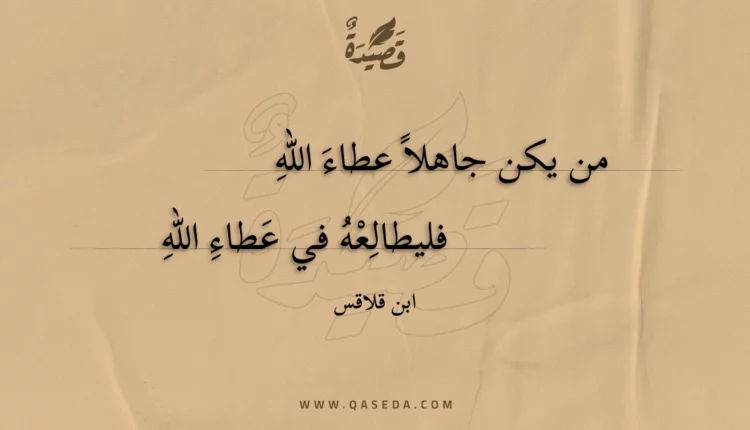 قَصِيْدَةٌ
من يكن جاهلاً عطاءَ اللهِ
فليطالِعْهُ في عَطاءِ اللهِ
ابن قلاقس
WWW.QASEDA.COM